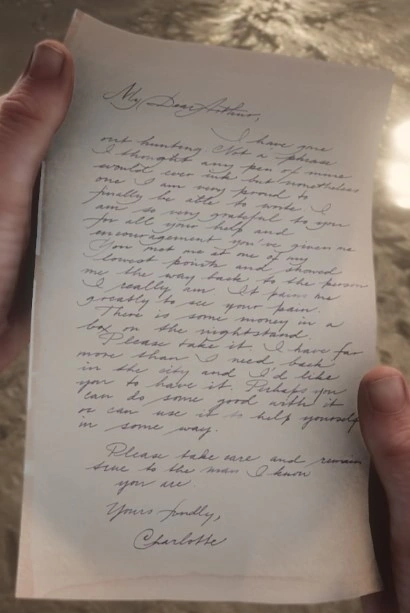 My Dear Arthur,
I have gone
out hunting Not a phrase
I thought any pen of mine
would ever ink but nonetheless
one I am very proud to
finally be able to write I
am so very grateful to you
for all your help and
encouragement you've given me
You met me at one of my
lowest points and showed
me the way back to the person
I really am It pains me
greatly to see your pain.
There is some money in a
box on the nightstand
Please take it I have far
more than I need back
in the city and I'd like
you to have it. Perhaps you
can do some good with it
or can use it to help yourself
in some way.
Please take care and remain
true to the man I know
you are
Yours fondly,
Charlotte